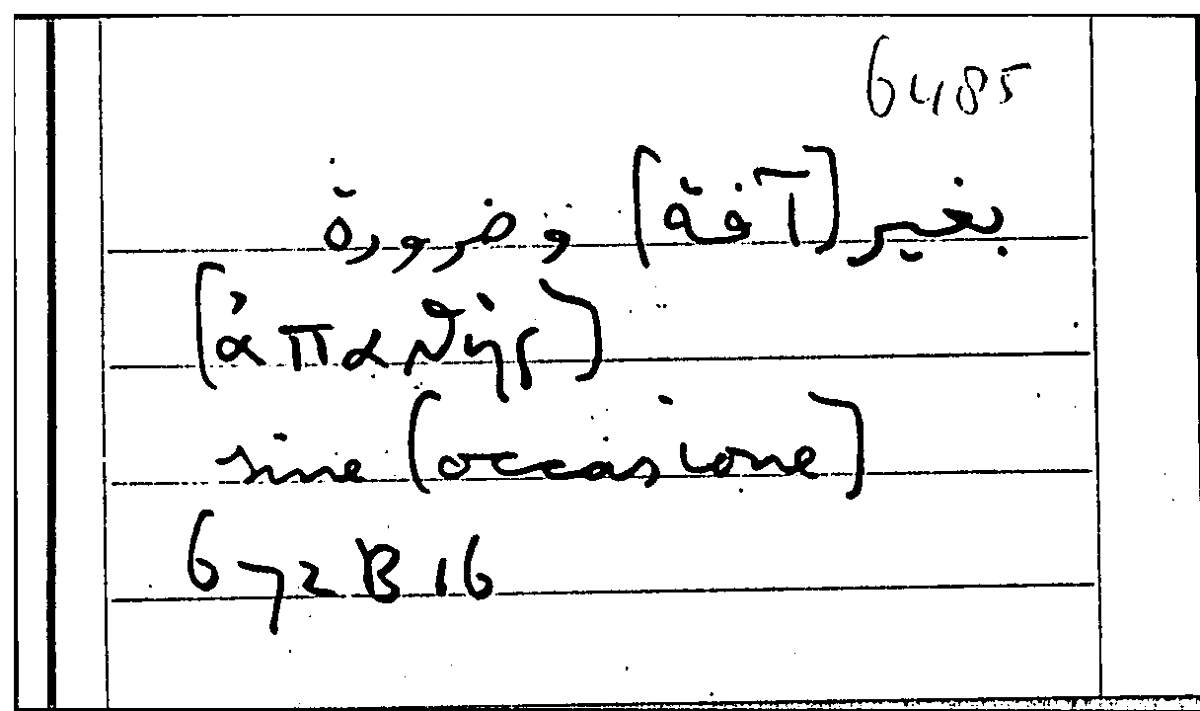 6485
بغير [آفة] وضرورة
[ἀπαθής]
sine [occasione]
672B16